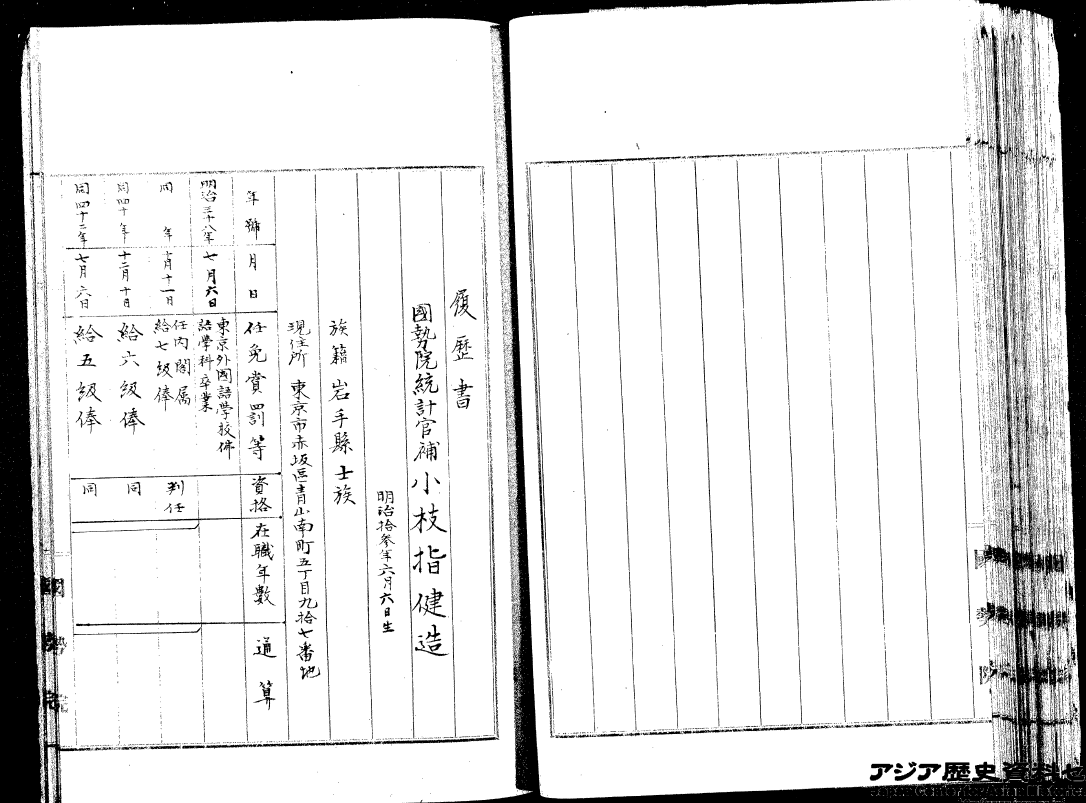 履歴書
國勢院統計官補小枝指健造
明治拾參年六月六日生
族籍 岩手縣士族
現住所 東京市赤坂區青山南町五丁目九拾七番地
年號 月日 任免賞罰等 資格 在職年數 通算
明治三十八年 七月六日 東京外國語學校佛
語學科卒業
同年 七月十一日 任内閣属 判任
給七級俸
同四十年 十二月十日 給六級俸 同
同四十二年 七月六日 給五級俸 同
國勢院
アジア歴史資料セ